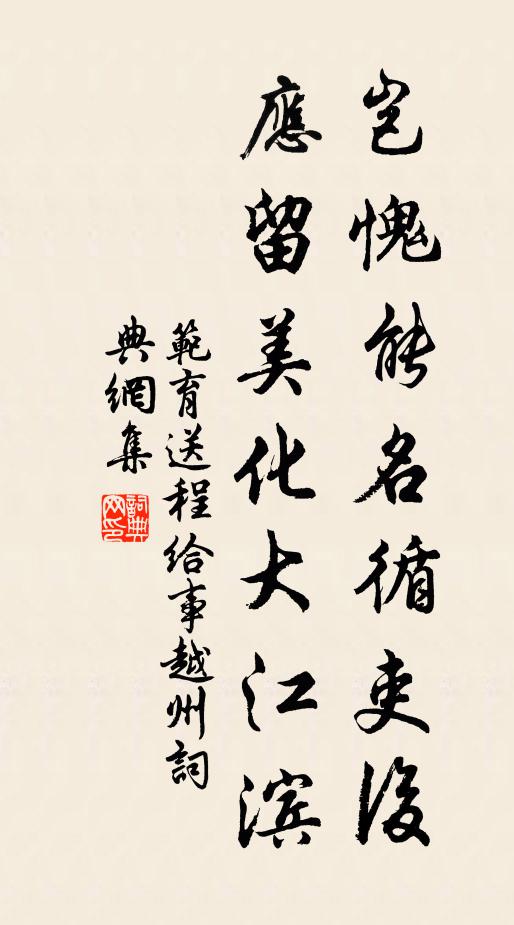 岂愧能名循吏後
應留美化大江滨
範育送程給事越州詞
典網集
詞典網印